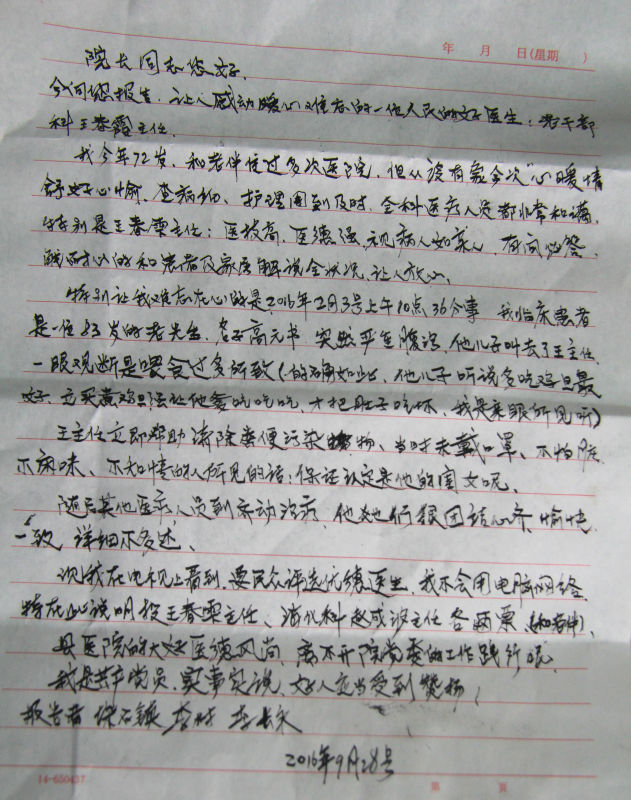 年 月 日(星期 )
院长同志您好.
今向您报告,让人感动暖心难忘的一位人民的好医生:老干部
科王春霞主任.
我今年72岁,和老伴住过多次医院,但从没有 今次"心暖情
舒好心愉,查病 、护理周到及时,全科医疗人员都非常和谐,
特别是王春霞主任:医技高,医德强,视病人如亲人,有问必答,
耐心的和患者及家属解说全状况,让人放心.
特别让我难忘在心的是,2016年2月3号上午10点36分事 我临床患者
是一位83岁的老先生,名子高元书 突发严重腹泻,他儿子叫去了王主任
一眼观断是喂食过多所致(的确如此,他儿子听说多吃鸡旦最
好,立买 鸡旦 让他爹吃吃吃,才把肚子吃坏,我是亲眼所见所)
王主任立即帮助清除粪便污染 物、当时未戴口罩、不怕脏
不 味、不知情的人所见的话:保证认定是他的闺女呢、
随后其他医疗人员到齐动治疗,他她们很团结心齐愉快
一致 详细不多述、
次我在电视上看到,要民众评选优德医生,我不会用电脑网络
特在此说明投王春霞主任、消化科赵成 主任各两票、(和老伴)、
县医院的大好医德风尚,离不开院党委的工作践行 .
我是共产党员,实事实说,好人应当受到赞扬,
报告者 石 李
2016年9月28号
14-650437
第 页